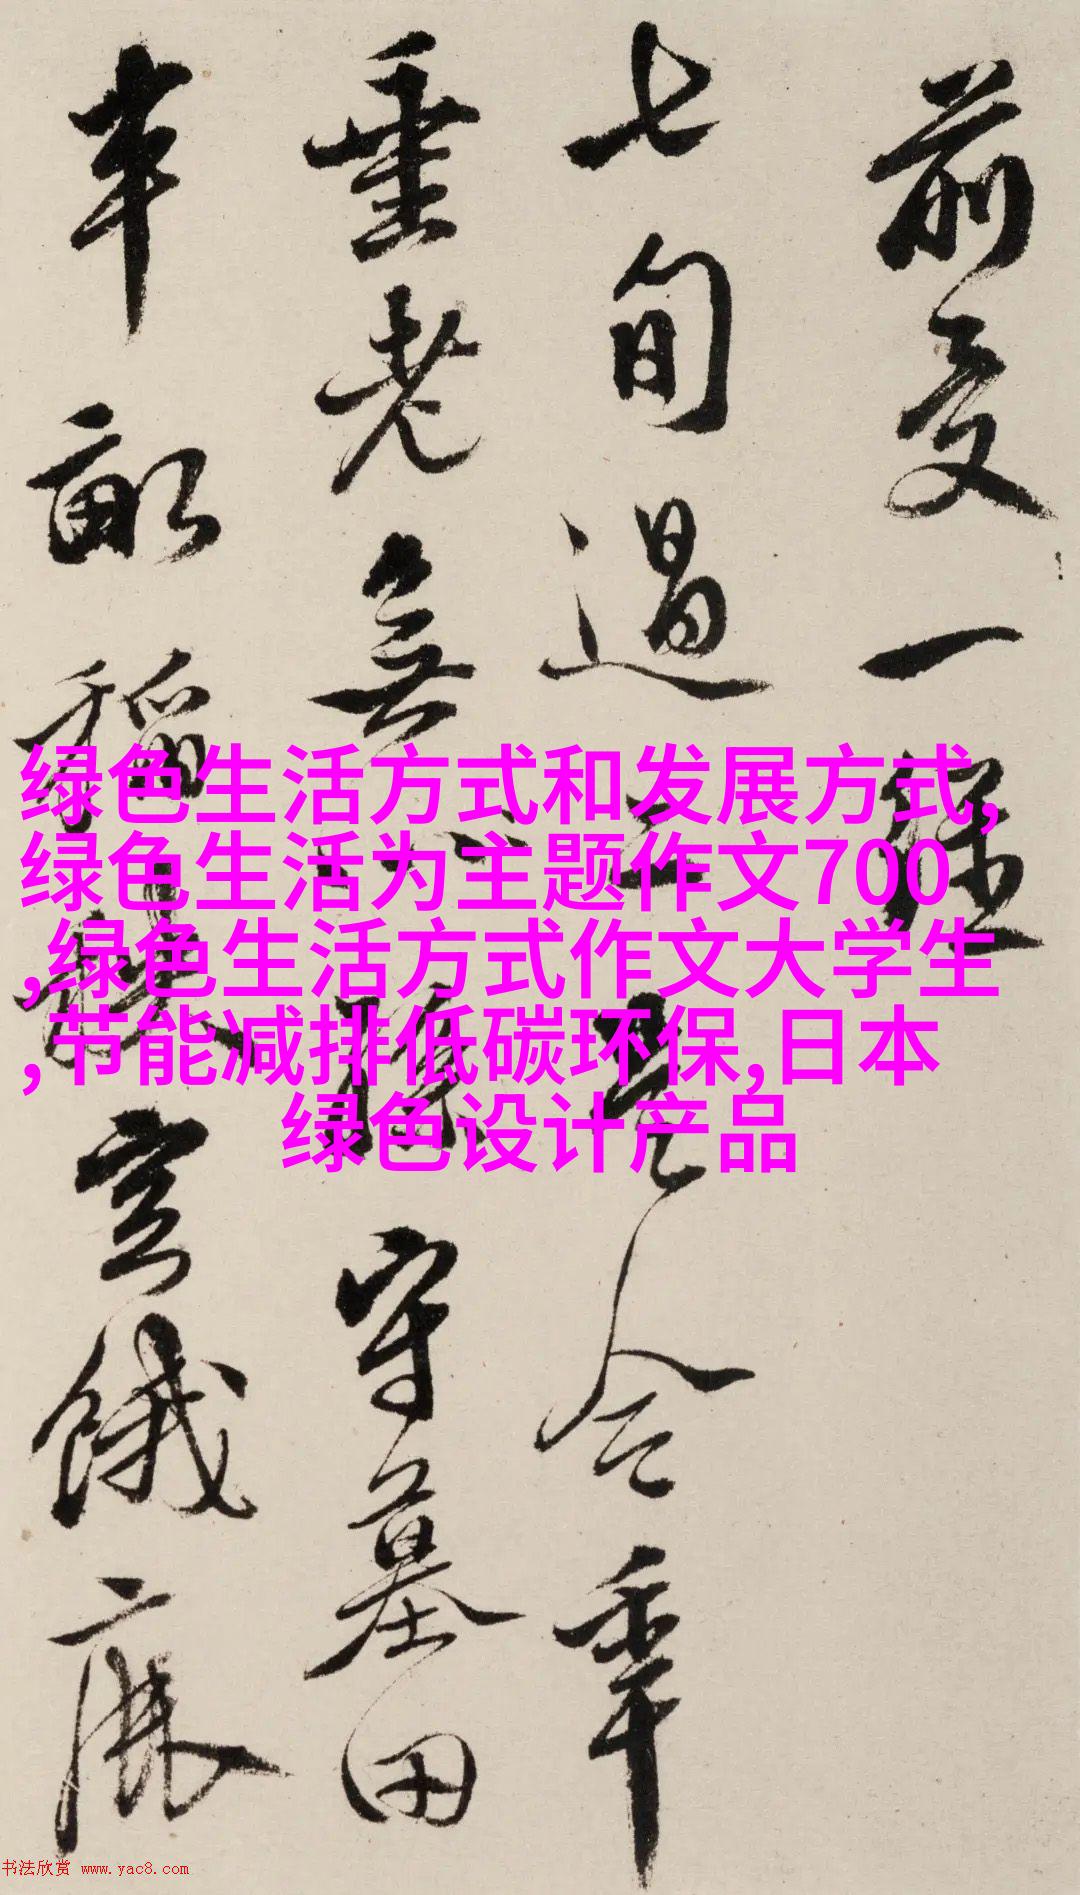 前受一廛
七旬過二是今年
垂老無
守墓田
半畝
空餓
绿色生活方式和发展方式,
绿色生活为主题作文700
,绿色生活方式作文大学生
,节能减排低碳环保,日本
绿色设计产品
书法欣赏 www.yac8.com